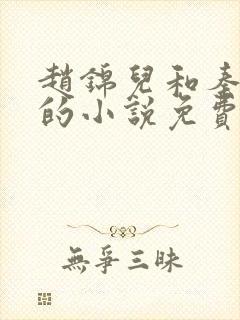 趙錦兒和秦
的小說免費
無爭三昧